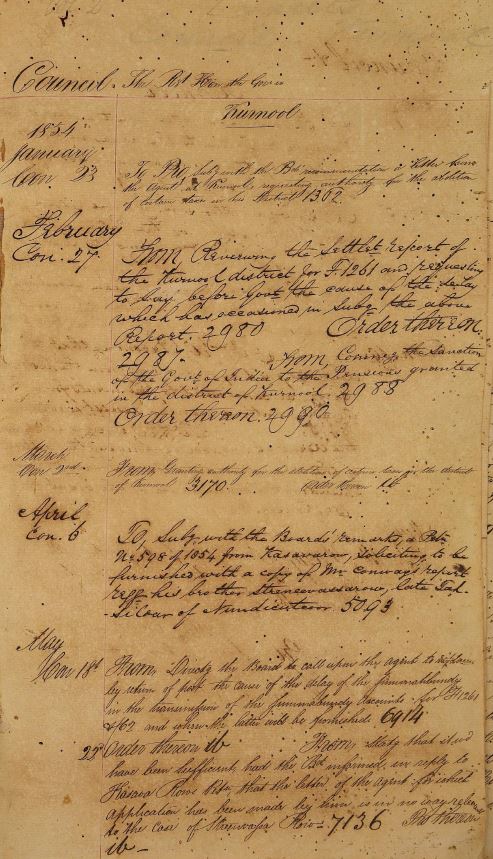 Council. The Rt Hon the Gov in
Kurnool
1854
January
Con. 23
To, Prs, Subg with the Bds recommendation a letter from
the Agent at Kurnool, requesting authority for the abolition
of certain taxes in his District 1302.
February
Con. 27
From, Reviewing the Settlt report of
the Kurnool district for F 1261 and requesting
to lay before Govt the cause of the delay
which has occasioned in Subg the above
Report. 2980 Order thereon.
2987. From, Coning the Sanction
of the Govt of India to the Pensions granted
in the district of Kurnool. 2988
Order thereon. 2990
March
Con 2nd
From, Granting authority for the abolition of certain taxes in the district
of Kurnool 3170. Order thereon ib
April
Con. 6
To, Subg with the Boards' remarks, a Petn
No 598 of 1854 from Kasavarow, soliciting to be
furnished with a copy of Mr Conway's report
regg his brother Streenevassarow, late Tah
Sildar of 5093
May
Con 18th
From, Directg the Board to call upon the agent to explain
by return of post the cause of the delay of the Jummabundy
in the transmission of the Jummabundy Accounts for F 1261
& 62 and when the latter will be furnished. 6914
22 Order thereon ib From, Statg that it wd
have been sufficient had the Bd informed, in reply to
Kasava Rows Petn, that the letter of the agent for which
application has been made by him is in no way
to the case of Row 7136 thereon
ib